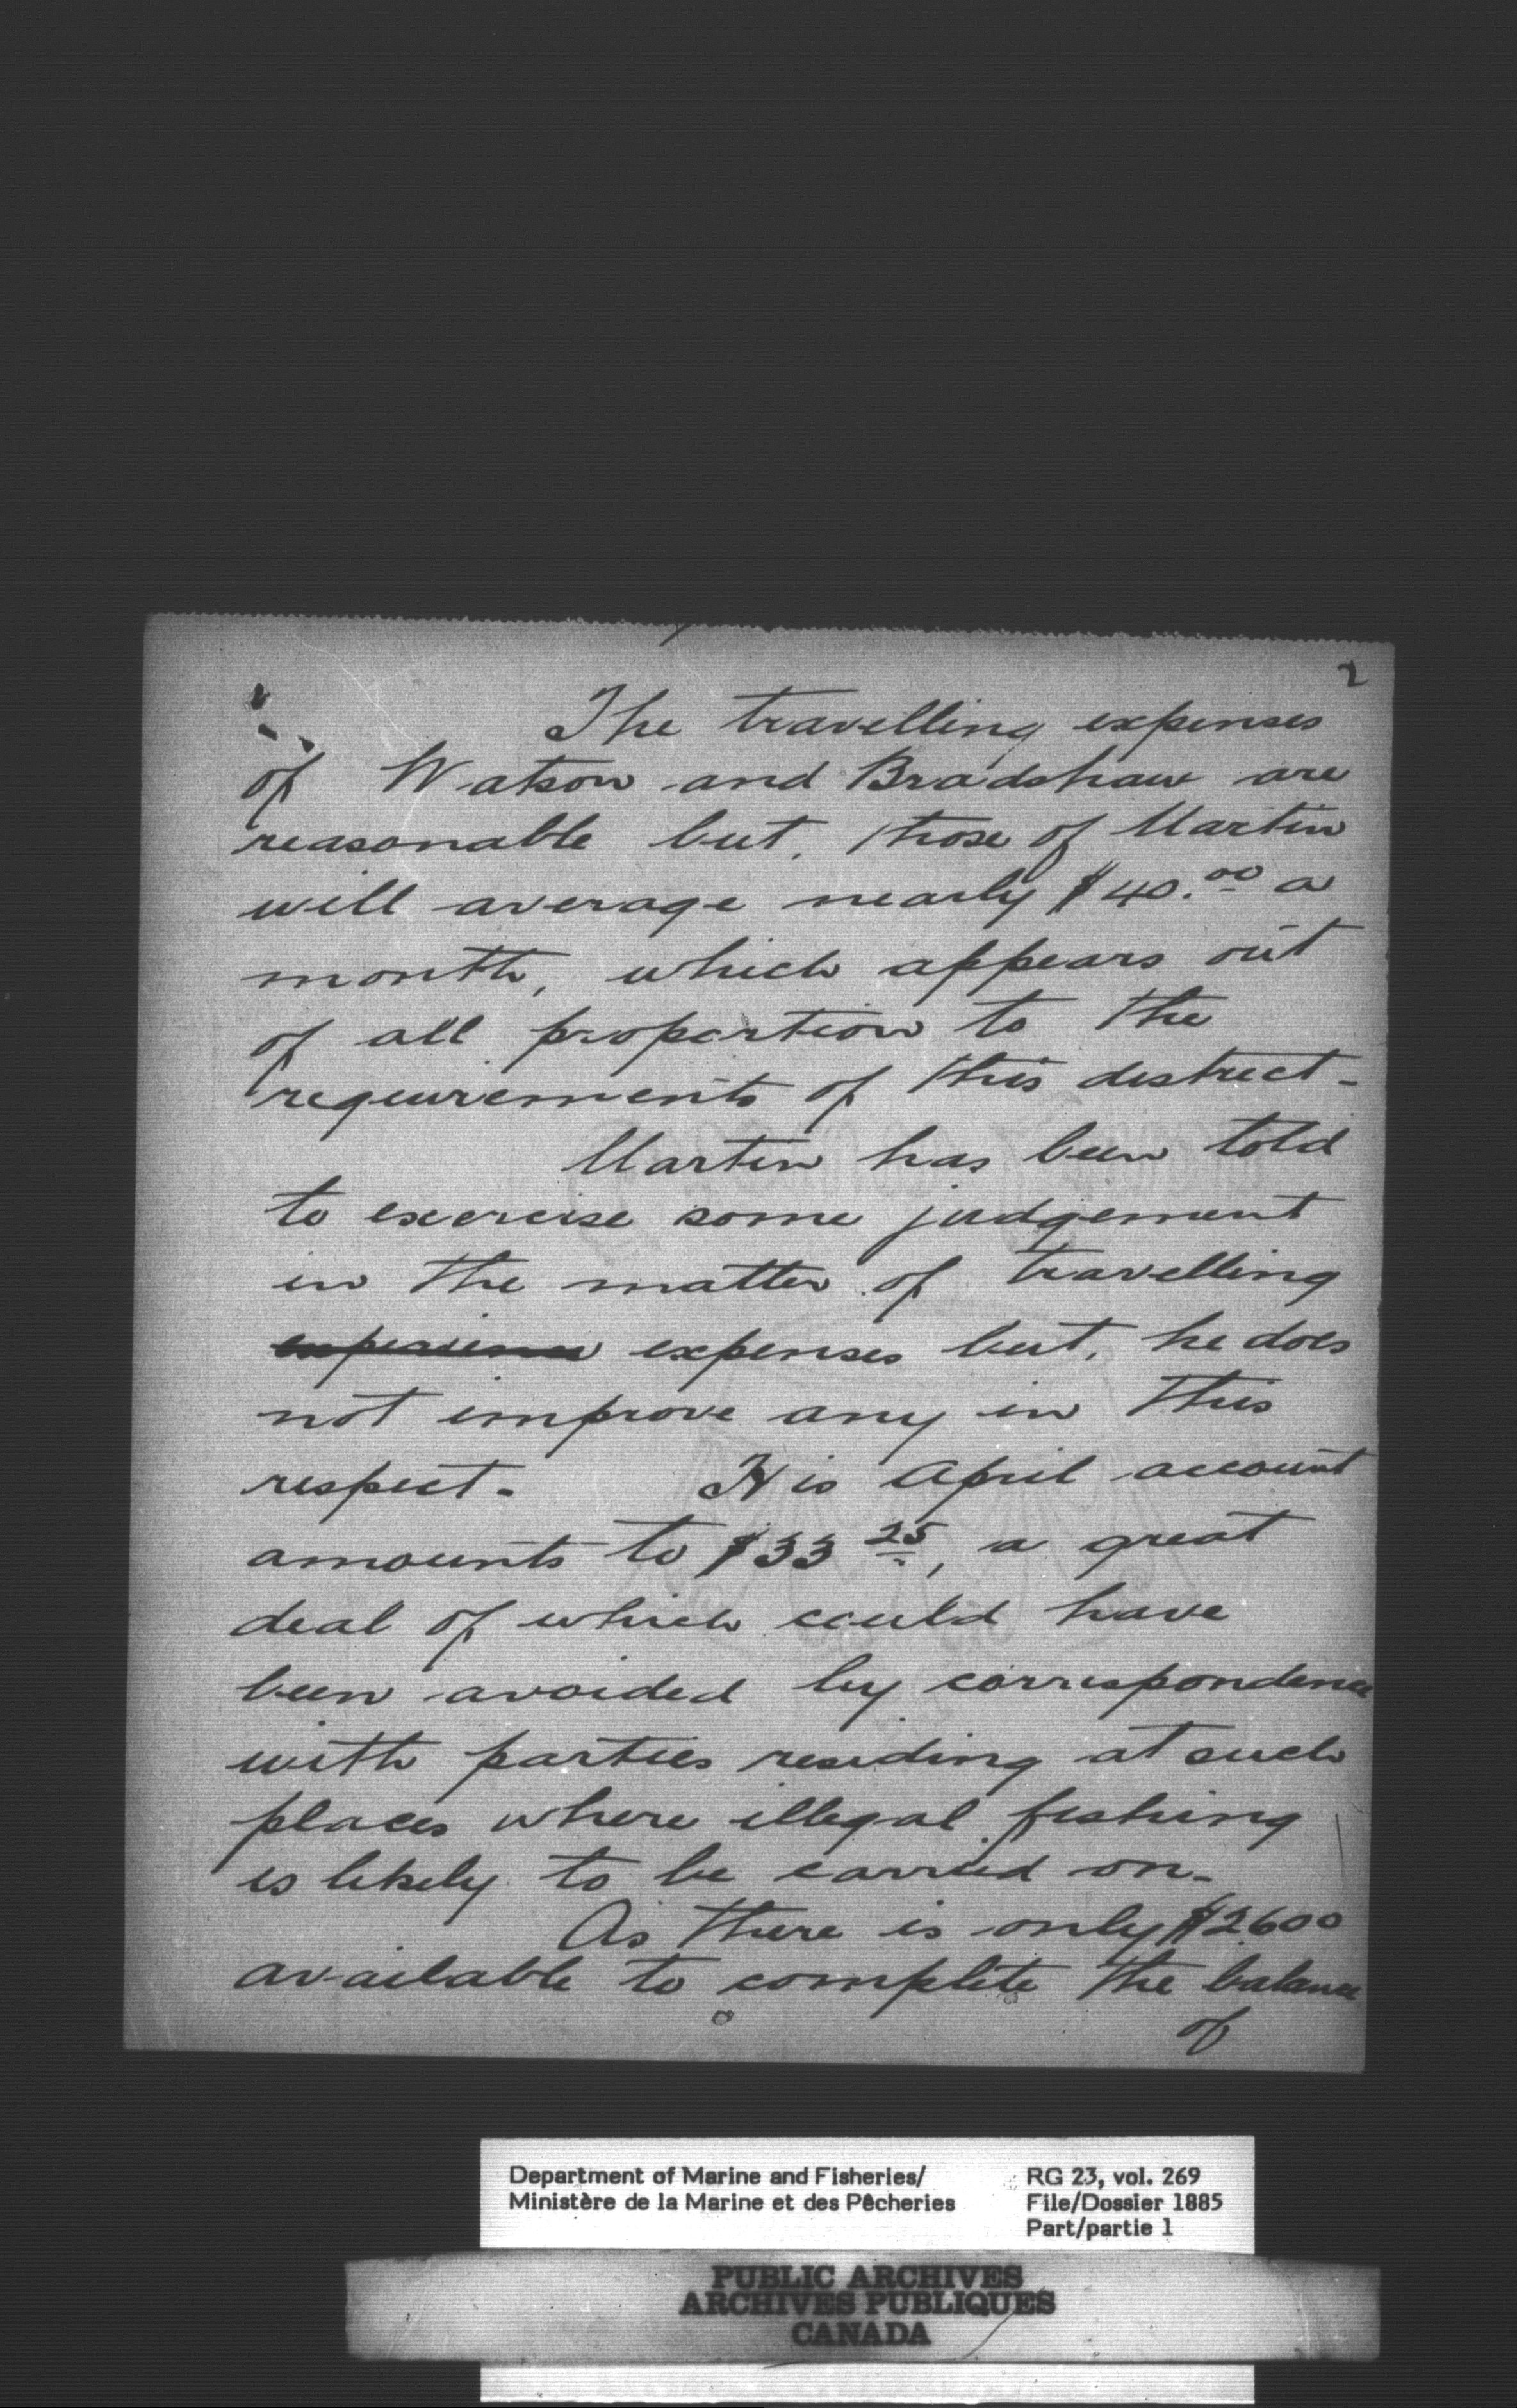 2
The travelling expenses
of Watson and Bradshaw are
reasonable but, those of Martin
will average nearly $40.00 a
month, which appears out
of all proportion to the
requirements of this district-
Martin has been told
to exercise some judgement
in the matter of travelling
experience expenses but, he does
not improve any in this
respect- His April account
amounts to $33 25, a great
deal of which could have
been avoided by correspondence
with parties residing at such
places where illegal fishing
is likely to be carried on-
As there is only $2600
available to complete the balance
of
Department of Marine and Fisheries/
Ministère de la Marine et des Pêcheries
RG 23, vol. 269
File/Dossier 1885
Part/partie 1
PUBLIC ARCHIVES
ARCHIVES PUBLIQUES
CANADA